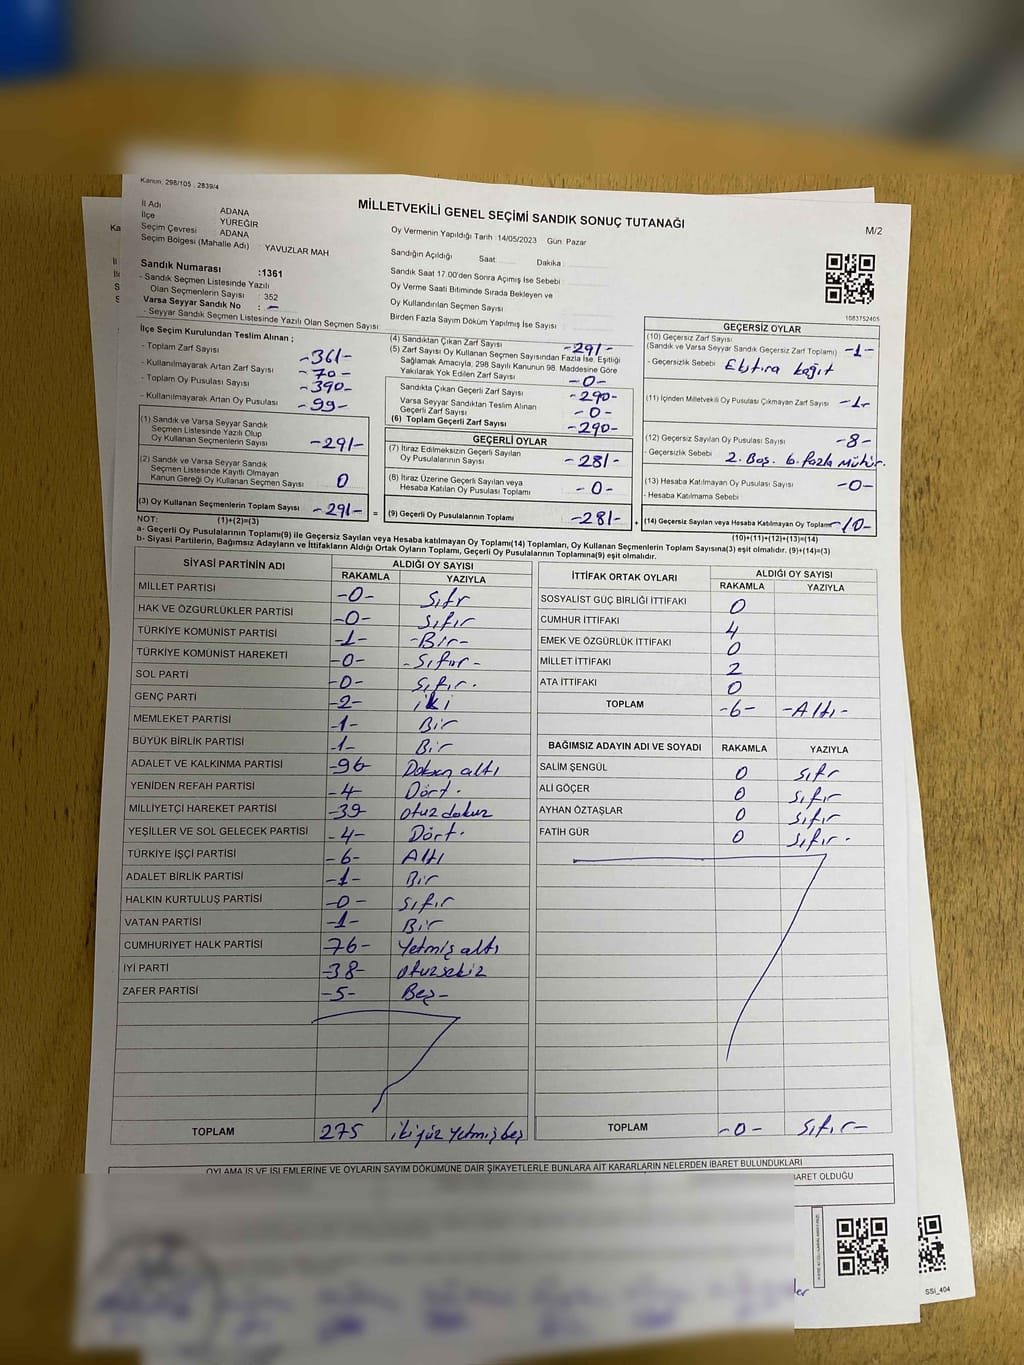 Kanun: 298/105 , 2839/4
MİLLETVEKİLİ GENEL SEÇİMİ SANDIK SONUÇ TUTANAĞI
M/2
İl Adı ADANA
İlçe YÜREĞİR
Seçim Çevresi ADANA
Seçim Bölgesi (Mahalle Adı) YAVUZLAR MAH
Sandık Numarası :1361
- Sandık Seçmen Listesinde Yazılı
Olan Seçmenlerin Sayısı : 352
Varsa Seyyar Sandık No : -
- Seyyar Sandık Seçmen Listesinde Yazılı Olan Seçmen Sayısı
Oy Vermenin Yapıldığı Tarih :14/05/2023 Gün: Pazar
Sandığın Açıldığı Saat Dakika
Sandık Saat 17.00'den Sonra Açımış İse Sebebi :
Oy Verme Saati Bitiminde Sırada Bekleyen ve
Oy Kullandırılan Seçmen Sayısı
Birden Fazla Sayım Döküm Yapılmış İse Sayısı
1083752405
İlçe Seçim Kurulundan Teslim Alınan ;
- Toplam Zarf Sayısı -361-
- Kullanılmayarak Artan Zarf Sayısı -70-
- Toplam Oy Pusulası Sayısı -390-
- Kullanılmayarak Artan Oy Pusulası -99-
(1) Sandık ve Varsa Seyyar Sandık
Seçmen Listesinde Yazılı Olup
Oy Kullanan Seçmenlerin Sayısı -291-
(2) Sandık ve Varsa Seyyar Sandık
Seçmen Listesinde Kayıtlı Olmayan
Kanun Gereği Oy Kullanan Seçmen Sayısı 0
(3) Oy Kullanan Seçmenlerin Toplam Sayısı -291- =
(4) Sandıktan Çıkan Zarf Sayısı -291-
(5) Zarf Sayısı Oy Kullanan Seçmen Sayısından Fazla İse, Eşitliği
Sağlamak Amacıyla, 298 Sayılı Kanunun 98. Maddesine Göre
Yakılarak Yok Edilen Zarf Sayısı -0-
Sandıkta Çıkan Geçerli Zarf Sayısı -290-
Varsa Seyyar Sandıktan Teslim Alınan
Geçerli Zarf Sayısı -0-
(6) Toplam Geçerli Zarf Sayısı -290-
GEÇERLİ OYLAR
(7) İtiraz Edilmeksizin Geçerli Sayılan
Oy Pusulalarının Sayısı -281-
(8) İtiraz Üzerine Geçerli Sayılan veya
Hesaba Katılan Oy Pusulası Toplamı -0-
(9) Geçerli Oy Pusulalarının Toplamı -281- +
GEÇERSİZ OYLAR
(10) Geçersiz Zarf Sayısı
(Sandık ve Varsa Seyyar Sandık Geçersiz Zarf Toplamı) -1-
- Geçersizlik Sebebi : Ekstra kağıt
(11) İçinden Milletvekili Oy Pusulası Çıkmayan Zarf Sayısı -1-
(12) Geçersiz Sayılan Oy Pusulası Sayısı -8-
- Geçersizlik Sebebi 2. Boş. 6. fazla mühür.
(13) Hesaba Katılmayan Oy Pusulası Sayısı -0-
- Hesaba Katılmama Sebebi
(14) Geçersiz Sayılan veya Hesaba Katılmayan Oy Toplamı -10-
NOT: (1)+(2)=(3) (10)+(11)+(12)+(13)=(14)
a- Geçerli Oy Pusulalarının Toplamı(9) ile Geçersiz Sayılan veya Hesaba katılmayan Oy Toplamı(14) Toplamları, Oy Kullanan Seçmenlerin Toplam Sayısına(3) eşit olmalıdır. (9)+(14)=(3)
b- Siyasi Partilerin, Bağımsız Adayların ve İttifakların Aldığı Ortak Oyların Toplamı, Geçerli Oy Pusulalarının Toplamına(9) eşit olmalıdır.
SİYASİ PARTİNİN ADI ALDIĞI OY SAYISI
RAKAMLA YAZIYLA
MİLLET PARTİSİ -0- Sıfr
HAK VE ÖZGÜRLÜKLER PARTİSİ -0- Sıfır
TÜRKİYE KOMÜNİST PARTİSİ -1- -Bir-
TÜRKİYE KOMÜNİST HAREKETİ -0- -Sıfır-
SOL PARTİ -0- Sıfır.
GENÇ PARTİ -2- iki
MEMLEKET PARTİSİ -1- Bir
BÜYÜK BİRLİK PARTİSİ -1- Bir
ADALET VE KALKINMA PARTİSİ -96 Doksan altı
YENİDEN REFAH PARTİSİ -4- Dört.
MİLLİYETÇİ HAREKET PARTİSİ -39 otuz dokuz
YEŞİLLER VE SOL GELECEK PARTİSİ -4- Dört.
TÜRKİYE İŞÇİ PARTİSİ -6- Altı
ADALET BİRLİK PARTİSİ -1- Bir
HALKIN KURTULUŞ PARTİSİ -0- sıfır
VATAN PARTİSİ -1- Bir
CUMHURİYET HALK PARTİSİ 76- Yetmiş altı
İYİ PARTİ -38- otuzsekiz
ZAFER PARTİSİ -5- Beş-
TOPLAM 275 iki yüz Yetmiş beş
İTTİFAK ORTAK OYLARI ALDIĞI OY SAYISI
RAKAMLA YAZIYLA
SOSYALİST GÜÇ BİRLİĞİ İTTİFAKI 0
CUMHUR İTTİFAKI 4
EMEK VE ÖZGÜRLÜK İTTİFAKI 0
MİLLET İTTİFAKI 2
ATA İTTİFAKI 0
TOPLAM -6- -Altı-
BAĞIMSIZ ADAYIN ADI VE SOYADI RAKAMLA YAZIYLA
SALİM ŞENGÜL 0 sıfr
ALİ GÖÇER 0 sıfır
AYHAN ÖZTAŞLAR 0 sıfır
FATİH GÜR 0 sıfır.
TOPLAM -0- sıfır-
OYLAMA İŞ VE İŞLEMLERİNE VE OYLARIN SAYIM DÖKÜMÜNE DAİR ŞİKAYETLERLE BUNLARA AİT KARARLARIN NELERDEN İBARET BULUNDUKLARI
BARET OLDUĞU
SSİ_404